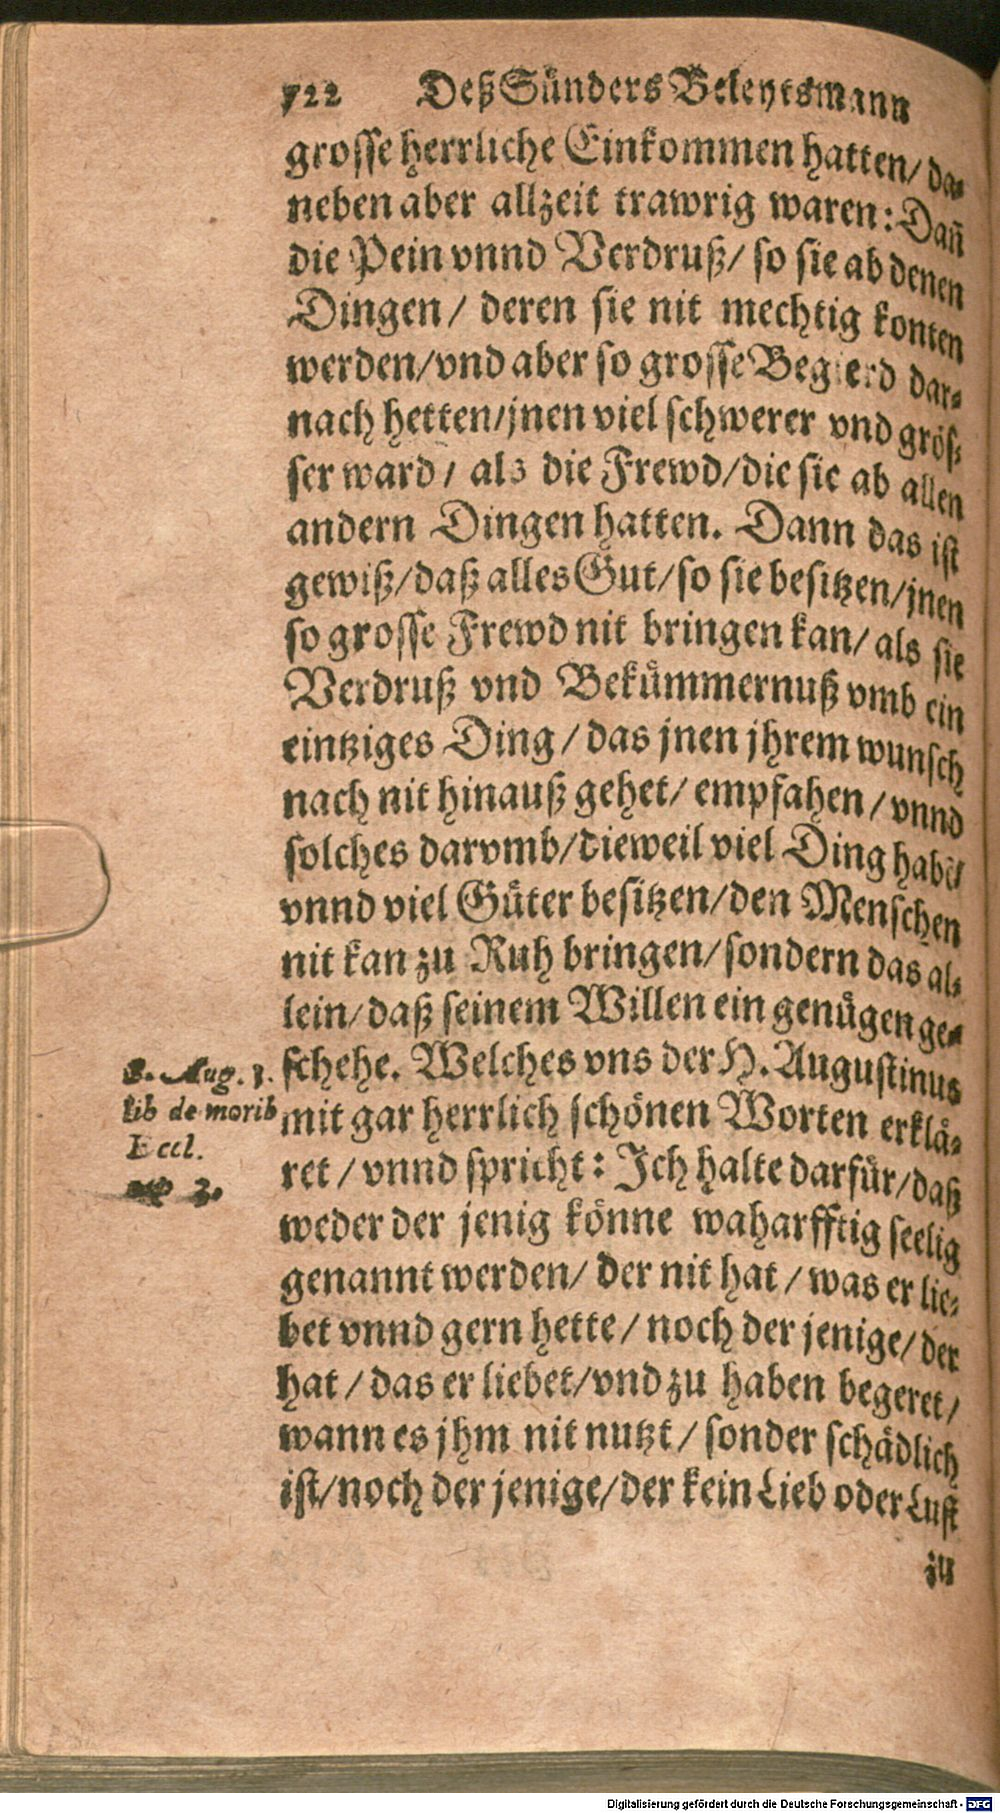 722 Deß Sünders Beleytsmann
grosse herrliche Einkommen hatten/ da-
neben aber allzeit trawrig waren: Dañ
die Pein vnnd Verdruß/ so sie ab denen
Dingen/ deren sie nit mechtig konten
werden/ vnd aber so grosse Begierd dar-
nach hetten/ jnen viel schwerer vnd gröſ-
ser ward/ als die Frewd/ die sie ab allen
andern Dingen hatten. Dann das ist
gewiß/ daß alles Gut/ so sie besitzen/ jnen
so grosse Frewd nit bringen kan/ als sie
Verdruß vnd Bekümmernuß vmb ein
eintziges Ding/ das jnen jhrem wunsch
nach nit hinauß gehet/ empfahen/ vnnd
solches darvmb/ dieweil viel Ding habē/
vnnd viel Güter besitzen/ den Menschen
nit kan zu Ruh bringen/ sondern das al-
lein/ daß seinem Willen ein genügen ge-
schehe. Welches vns der H. Augustinus
mit gar herrlich schönen Worten erklä-
ret/ vnnd spricht: Ich halte darfür/ daß
weder der jenig könne waharfftig seelig
genannt werden/ der nit hat/ was er lie-
bet vnnd gern hette/ noch der jenige/ der
hat/ das er liebet/ vnd zu haben begeret/
wann es jhm nit nutzt/ sonder schädlich
ist/ noch der jenige/ der kein Lieb oder Lust
zu
S. Aug. 1.
lib de morib
Eccl.
cap 3.
Digitalisierung gefördert durch die Deutsche Forschungsgemeinschaft - DFG